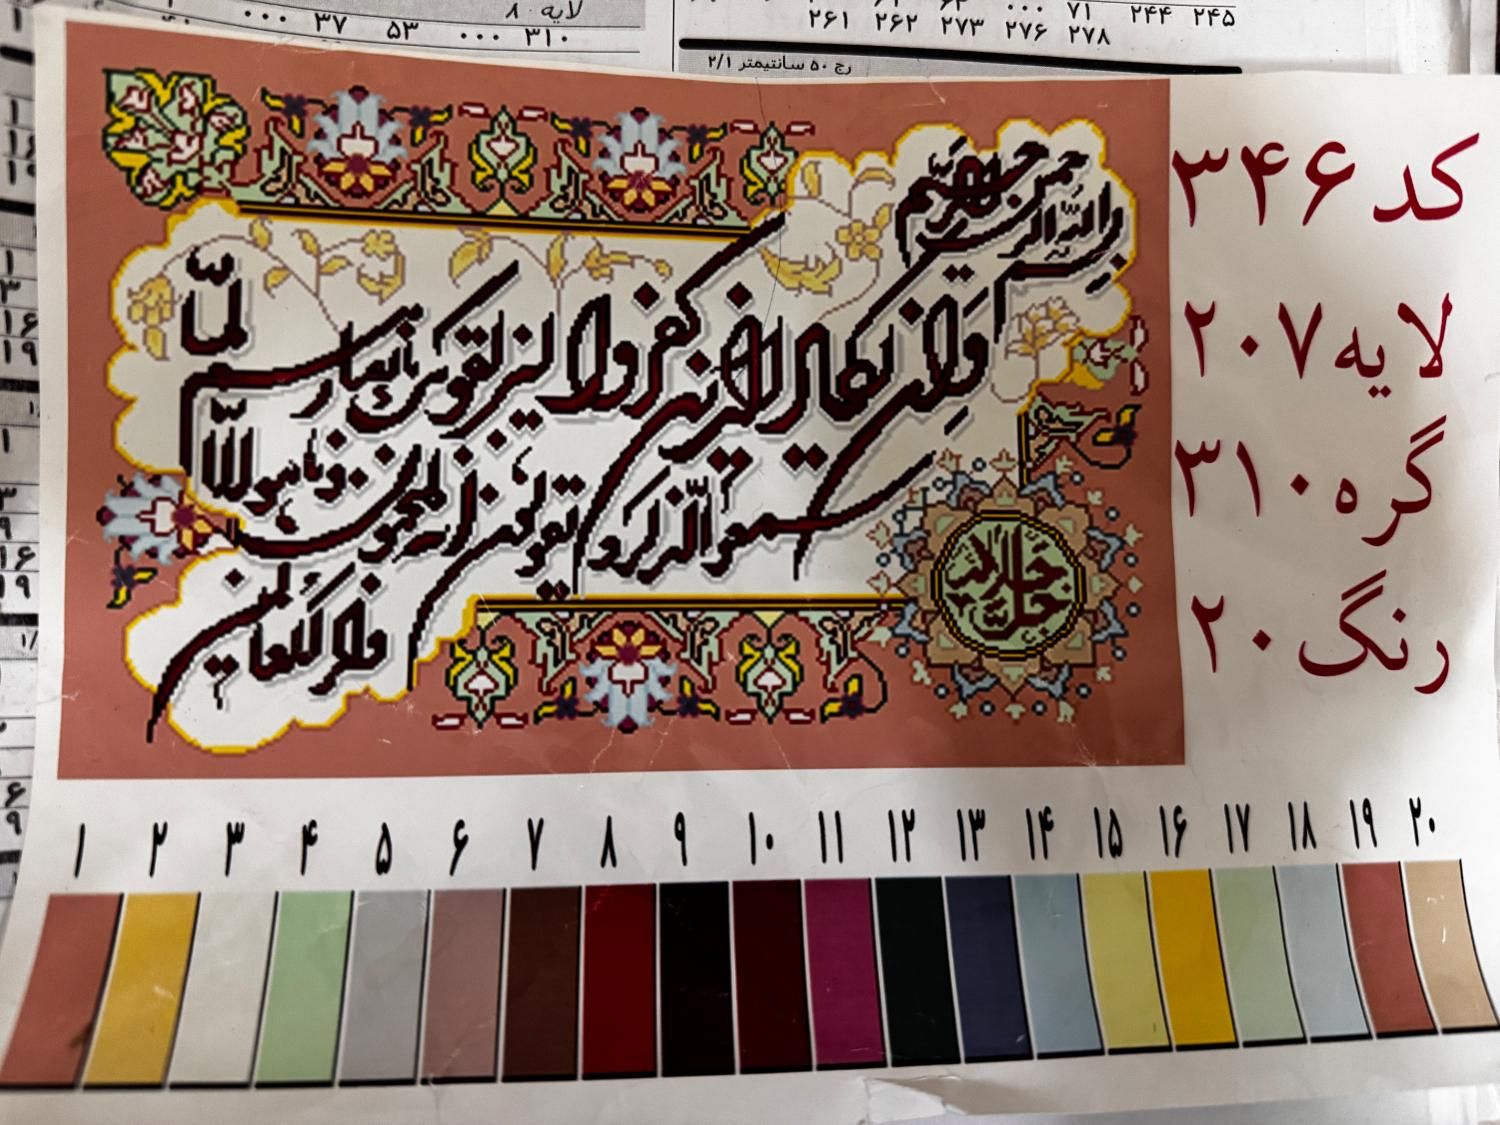 لایه ۸
۰۰۰ ۳۷ ۵۳ ۰۰۰ ۳۱۰
۷۱ ۲۴۴ ۲۴۵
۲۶۱ ۲۶۲ ۲۷۳ ۲۷۶ ۲۷۸
رج ۵۰ سانتیمتر ۲/۱
کد ۳۴۶
لایه ۲۰۷
گره ۳۱۰
رنگ ۲۰
بسم الله الرحمن الرحیم
وان یکاد الذین کفروا لیزلقونک بابصارهم لما
سمعوا الذکر و یقولون انه لمجنون و ما هو الا
ذکر للعالمین
جل جلاله
۱ ۲ ۳ ۴ ۵ ۶ ۷ ۸ ۹ ۱۰ ۱۱ ۱۲ ۱۳ ۱۴ ۱۵ ۱۶ ۱۷ ۱۸ ۱۹ ۲۰